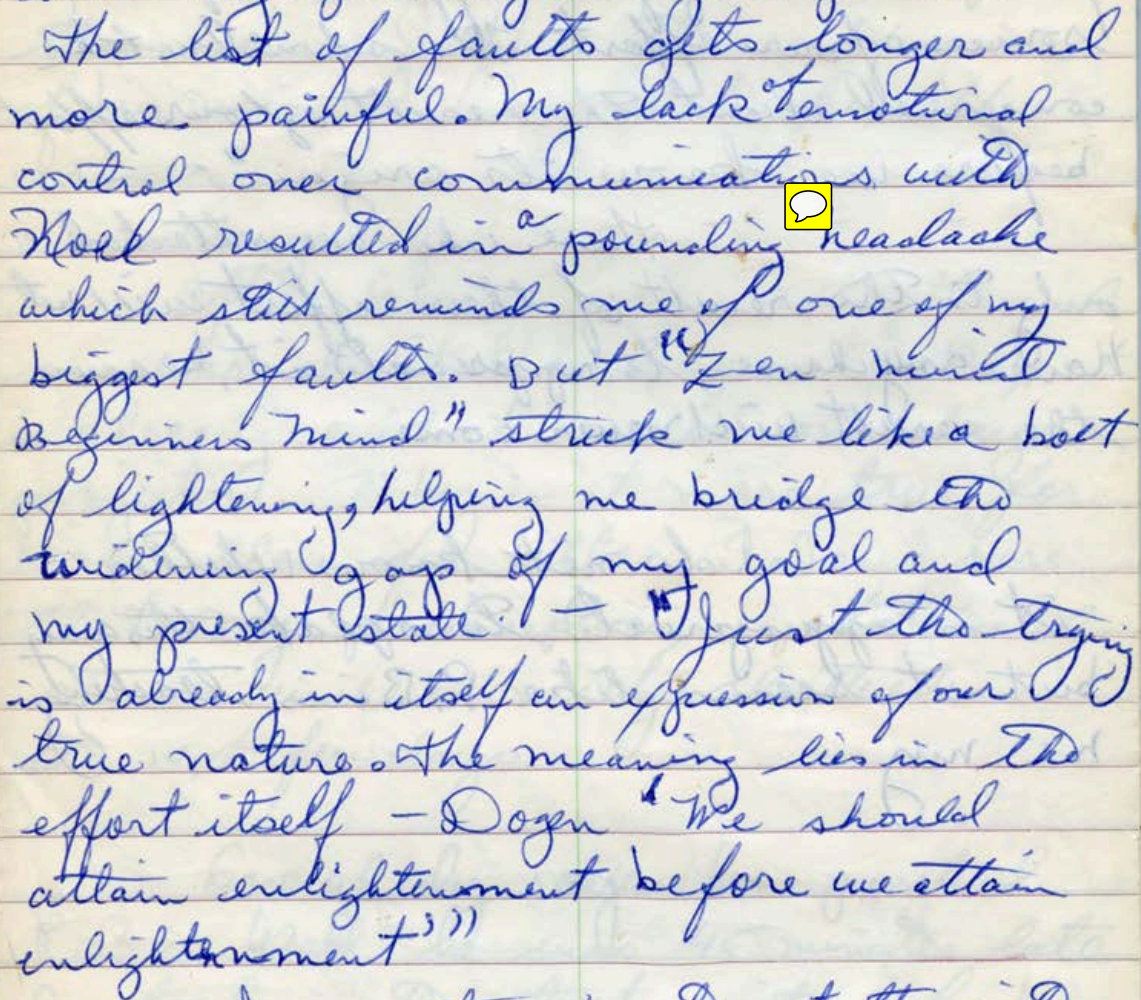 The list of faults gets longer and
more painful. My lack of emotional
control over communications with
Noel resulted in a pounding headache
which still reminds me of one of my
biggest faults. But "Zen mind
Beginners Mind" struck me like a bolt
of lightening, helping me bridge the
widening gap of my goal and
my present state. — "Just the trying
is already in itself an expression of our
true nature. The meaning lies in the
effort itself – Dogen 'We should
attain enlightenment before we attain
enlightenment'"